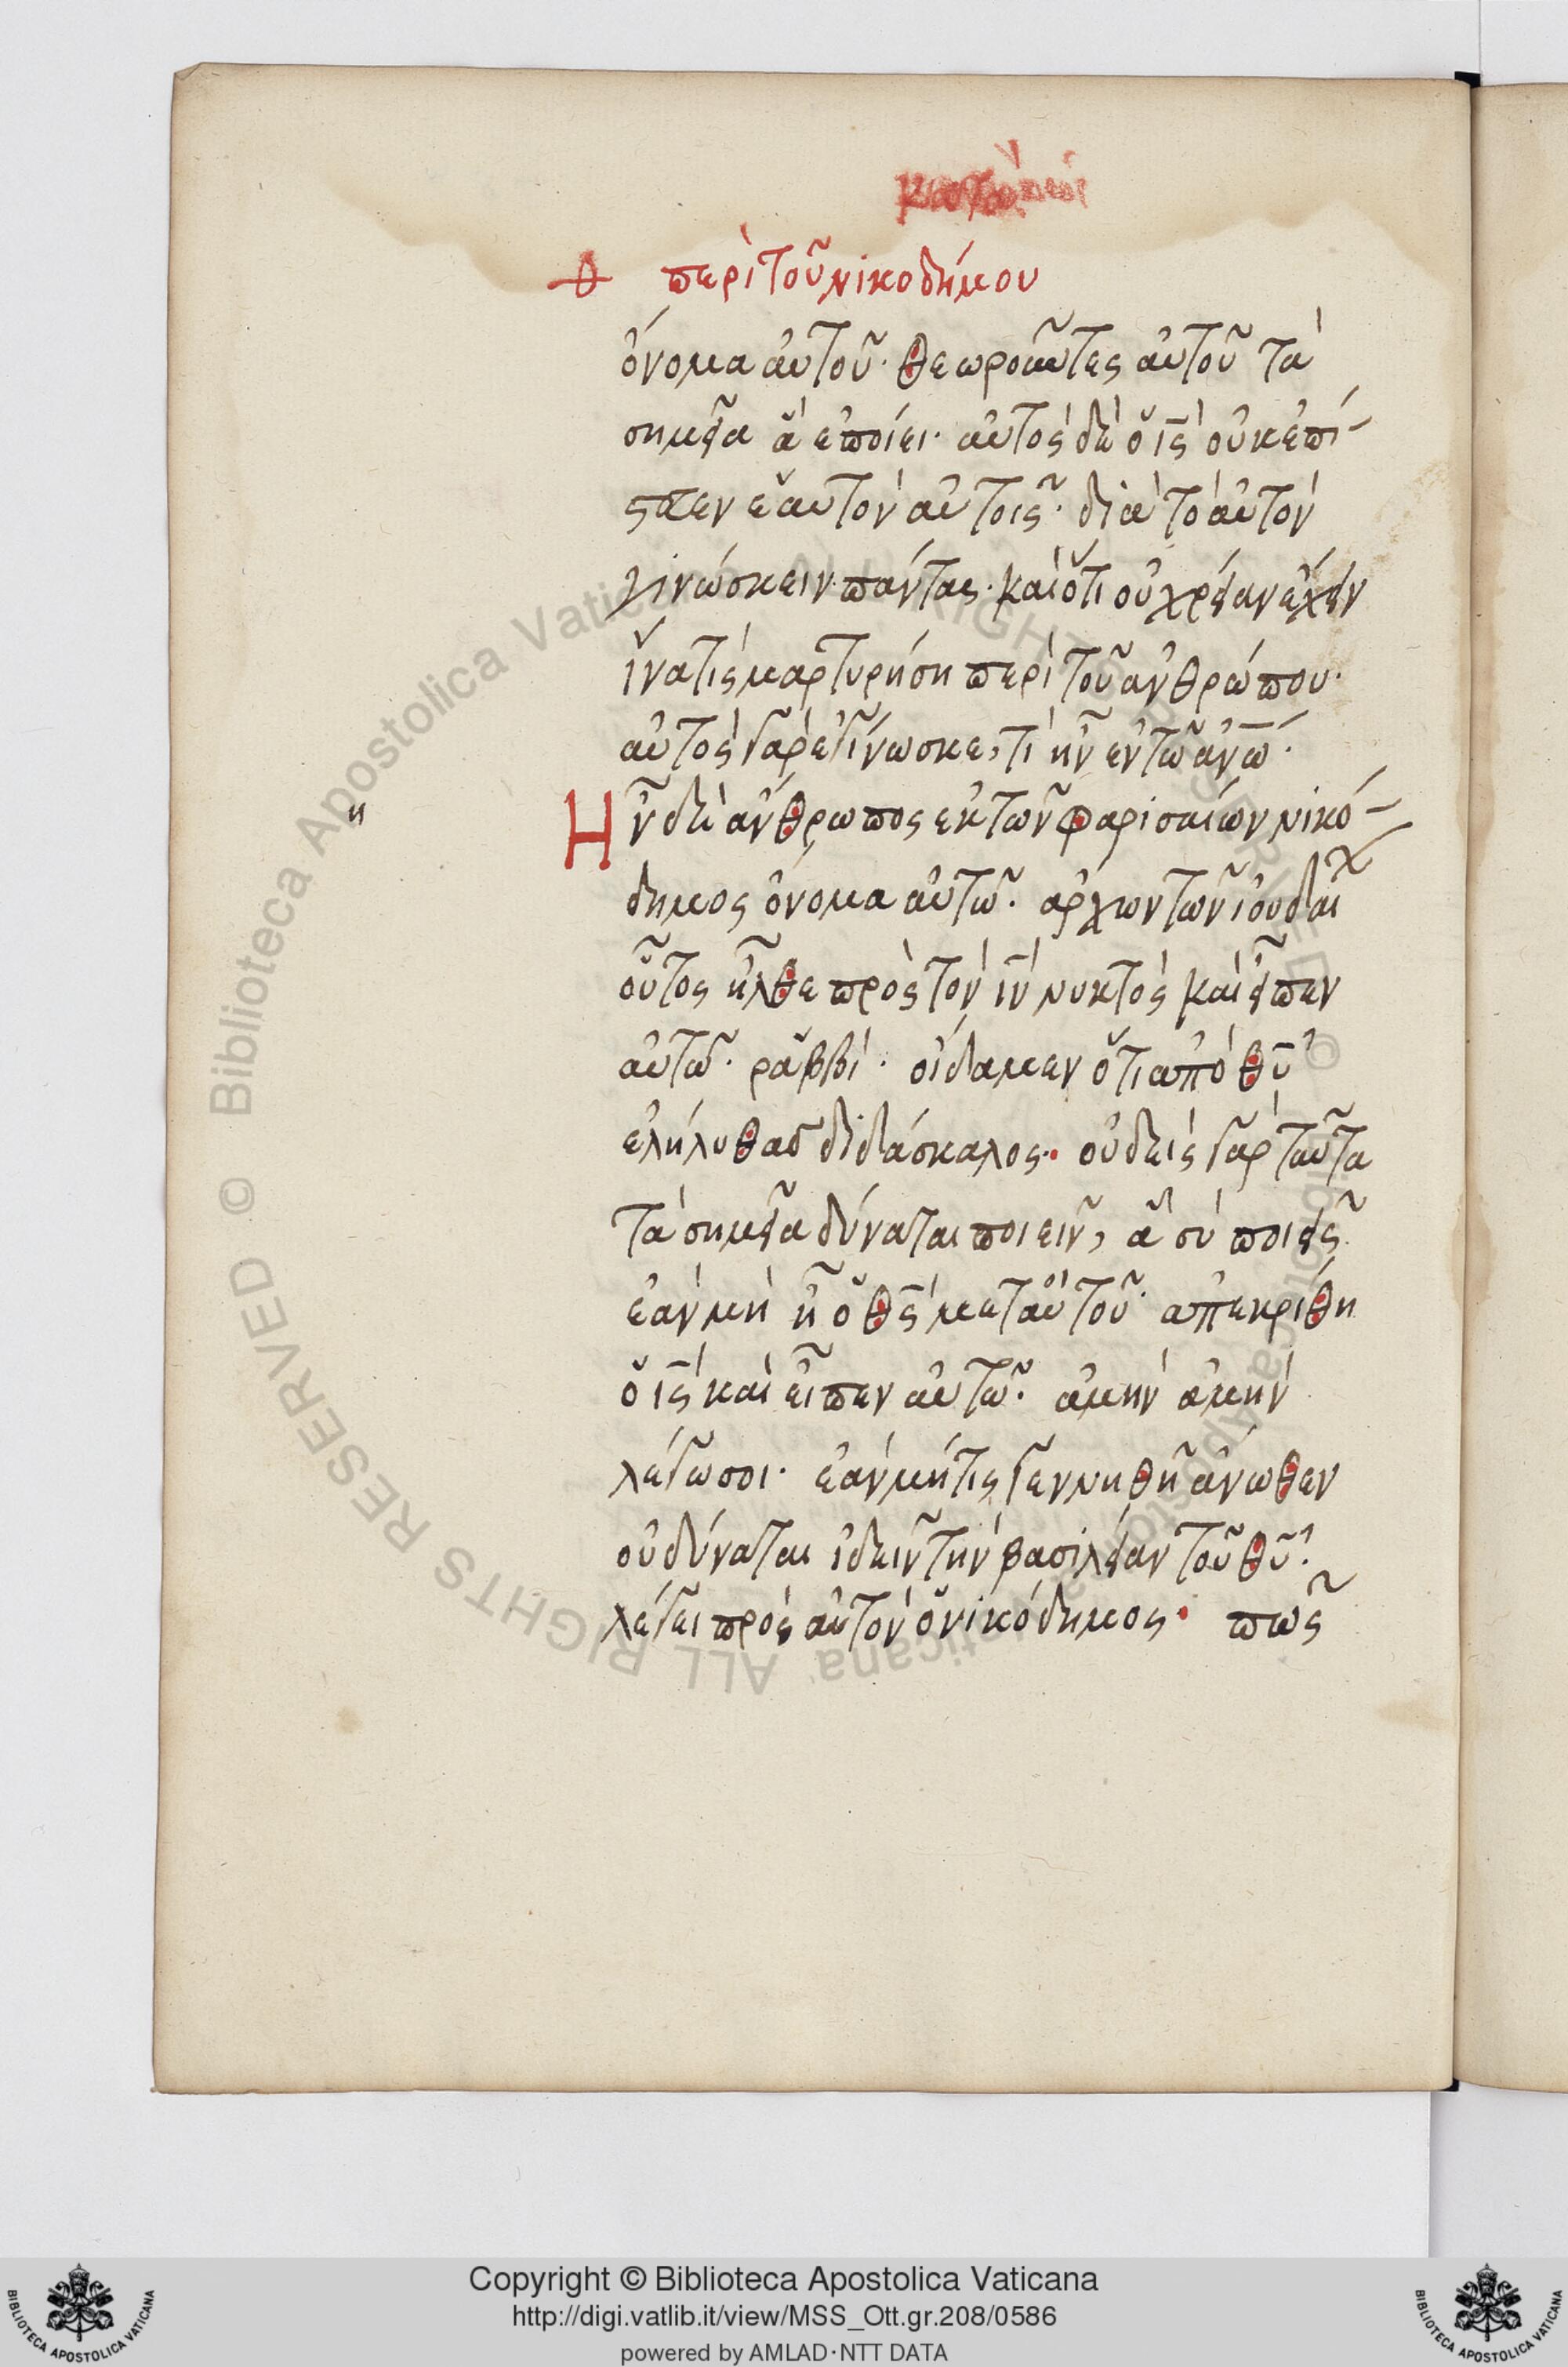 περὶ τοῦ νικοδήμου
ὄνομα αὐτοῦ· θεωροῦντες αὐτοῦ τὰ
σημεῖα ἃ ἐποίει· αὐτὸς δὲ ὁ ις̅ οὐκ ἐπί-
στευεν ἑαυτὸν αὐτοῖς· διὰ τὸ αὐτὸν
γινώσκειν πάντας· καὶ ὅτι οὐ χρείαν εἶχεν
ἵνα τὶς μαρτυρήση περὶ τοῦ ἀνθρώπου·
αὐτὸς γὰρ ἐγίνωσκε, τί ἦν ἐν τῶ ἀνω̅·
Ἦν δὲ ἄνθρωπος ἐκ τῶν φαρισαίων νικό-
δημος ὄνομα αὐτῶ· ἄρχων τῶν ἰουδαί
οὗτος ἦλθε πρὸς τὸν ιν̅ νυκτὸς καὶ εἶπεν
αὐτῶ· ῥαββί· οἴδαμεν ὅτι ἀπὸ θυ̅
ἐλήλυθας διδάσκαλος· οὐδεὶς γὰρ ταῦτα
τὰ σημεῖα δύναται ποιεῖν, ἃ σὺ ποιεῖς·
ἐὰν μὴ ἦ ὁ θς̅ μετ αὐτοῦ· ἀπεκρίθη
ὁ ις̅ καὶ εἶπεν αὐτῶ· ἀμὴν ἀμὴν
λέγω σοι· ἐὰν μή τις γεννηθῆ ἄνωθεν
οὐ δύναται ἰδεῖν τὴν βασιλείαν τοῦ θυ̅·
λέγει πρὸς αὐτὸν ὁ νικόδημος· πῶς
Copyright © Biblioteca Apostolica Vaticana
http://digi.vatlib.it/view/MSS_Ott.gr.208/0586
powered by AMLAD·NTT DATA
BIBLIOTECA APOSTOLICA VATICANA
BIBLIOTECA APOSTOLICA VATICANA
© Biblioteca Apostolica Vaticana ALL RIGHTS RESERVED
© Biblioteca Apostolica Vaticana ALL RIGHTS RESERVED